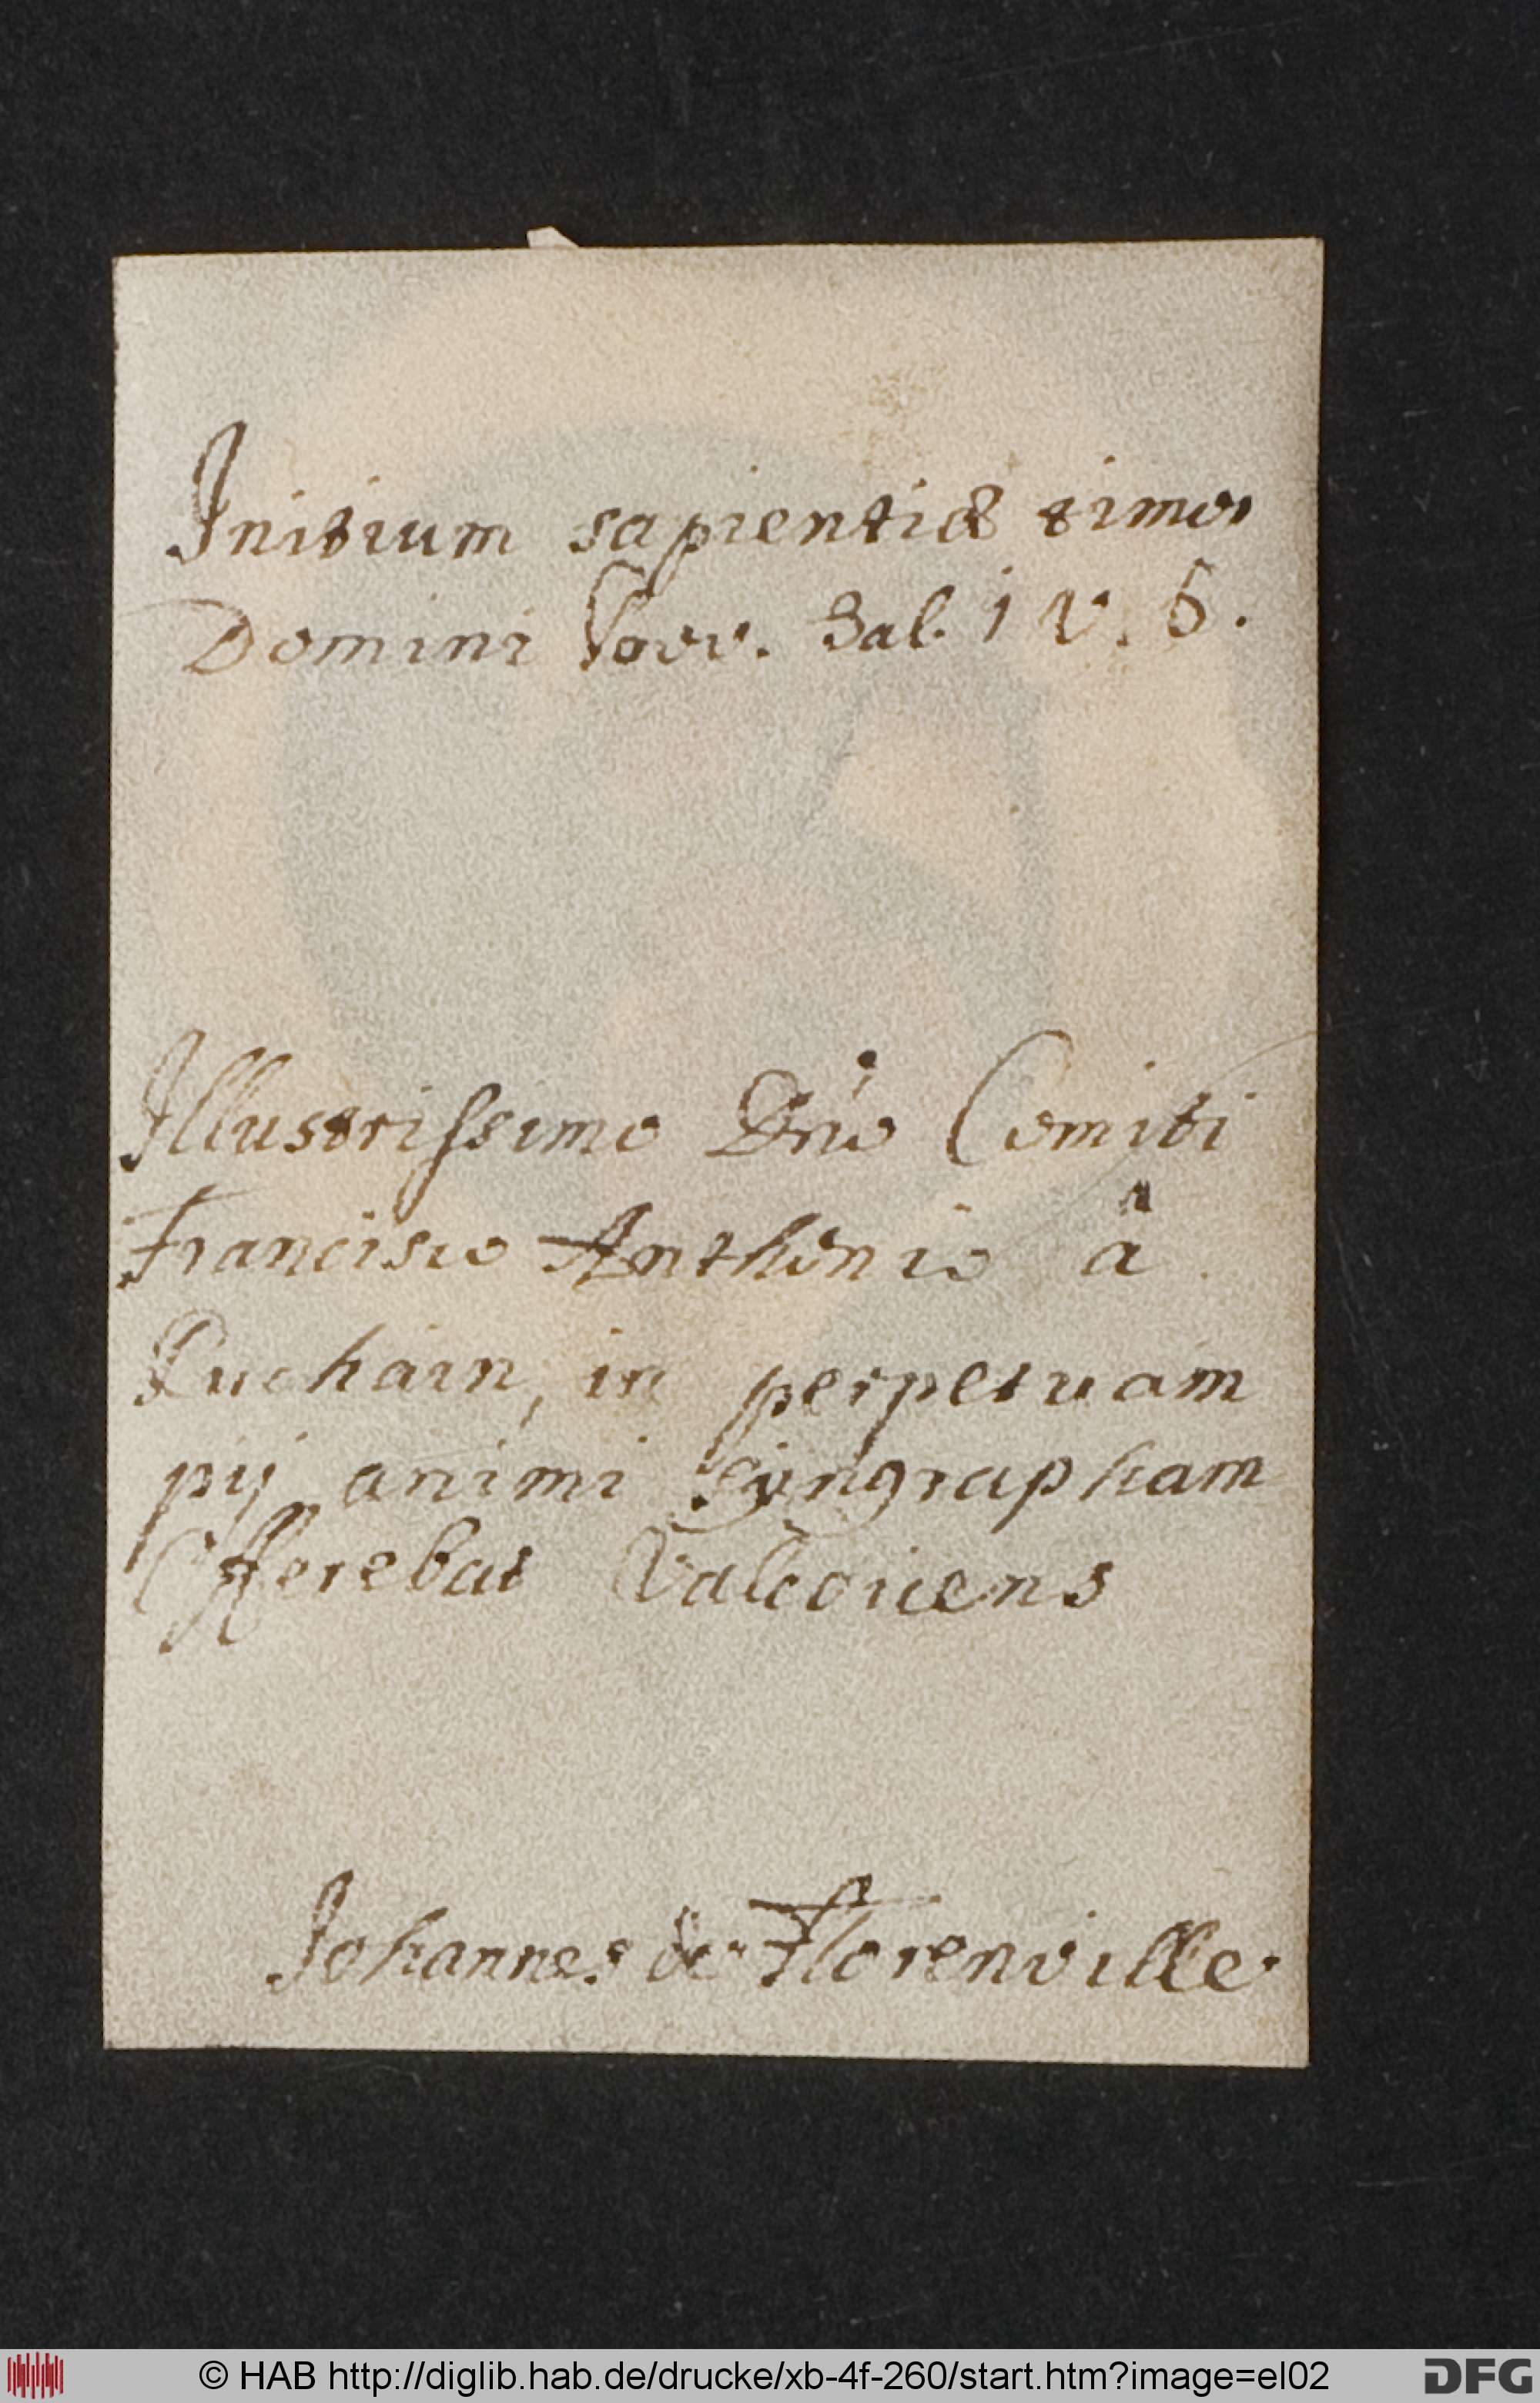 Initium sapientiæ timor
Domini Prov. Sal. 1 V. 5.
Illustrissimo Dn̄o Comiti
Francisco Anthonio â
Puchain, in perpetuam
pij animi syngrapham
Offerebat Valedicens
Johannes de Florenville.
© HAB http://diglib.hab.de/drucke/xb-4f-260/start.htm?image=el02
DFG